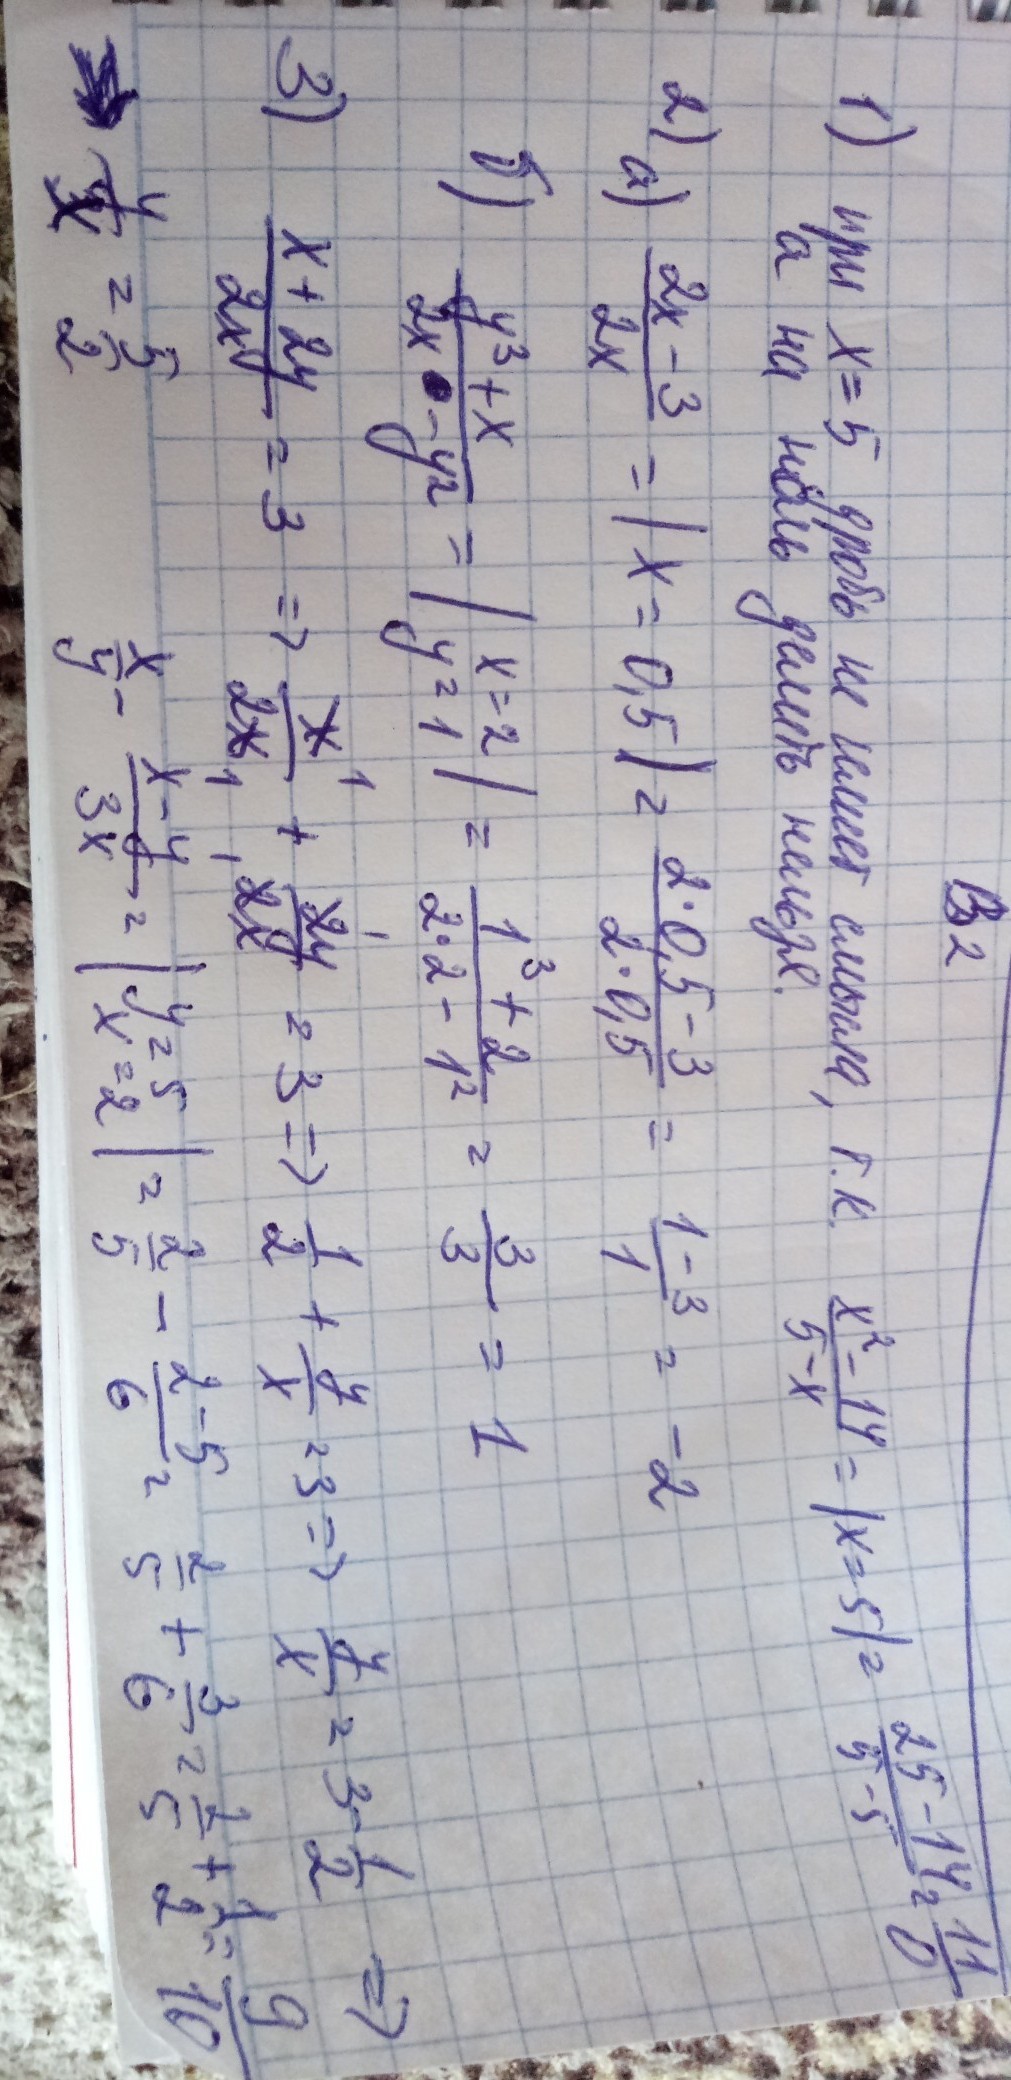 В 2
1) при x=5 дробь не имеет смысла, т.к. \frac{x²-14}{5-x} = |x=5| = \frac{25-14}{5-5} = \frac{11}{0}
а на ноль делить нельзя.
2) а) \frac{2x-3}{2x} = |x=0,5| = \frac{2·0,5-3}{2·0,5} = \frac{1-3}{1} = -2
б) \frac{y³+x}{2x-y²} = |x=2 y=1| = \frac{1³+2}{2·2-1²} = \frac{3}{3} = 1
3) \frac{x+2y}{2x} = 3 => \frac{x¹}{2x¹} + \frac{2y¹}{2x¹} = 3 => \frac{1}{2} + \frac{y}{x} = 3 => \frac{y}{x} = 3-\frac{1}{2} =>
\frac{y}{x} = \frac{5}{2} \frac{x}{y} - \frac{x-y}{3x} = |y=5 x=2| = \frac{2}{5} - \frac{2-5}{6} = \frac{2}{5} + \frac{3}{6} = \frac{2}{5} + \frac{1}{2} = \frac{9}{10}